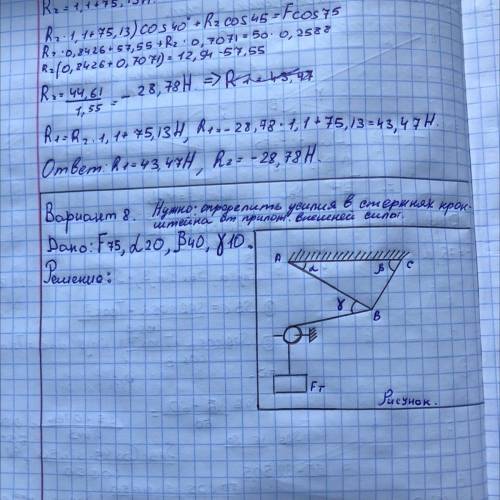 R₂ = 1,1+75,13H.
R₂ · 1,1+75,13) cos 40° + R₂ cos 45 = F cos 75
R₂ · 0,8426+57,55+R₂ · 0,7071 = 50 · 0,2588
R₂(0,8426+0,7071) = 12,94 - 57,55
R₂ = 44,61/1,55 = - 28,78H => R1 = 43,47
R1 = R₂ · 1,1+75,13H, R1 = -28,78 · 1,1+75,13 = 43,47H.
Ответ: R1 = 43,47H, R₂ = -28,78H.
Вариант 8. Нужно: определить усилия в стержнях крон-
штейна от прилож. внешней силы.
Дано: F75, α20, β40, γ10.
Решение:
A α β C
γ B
Fт
Рисунок.